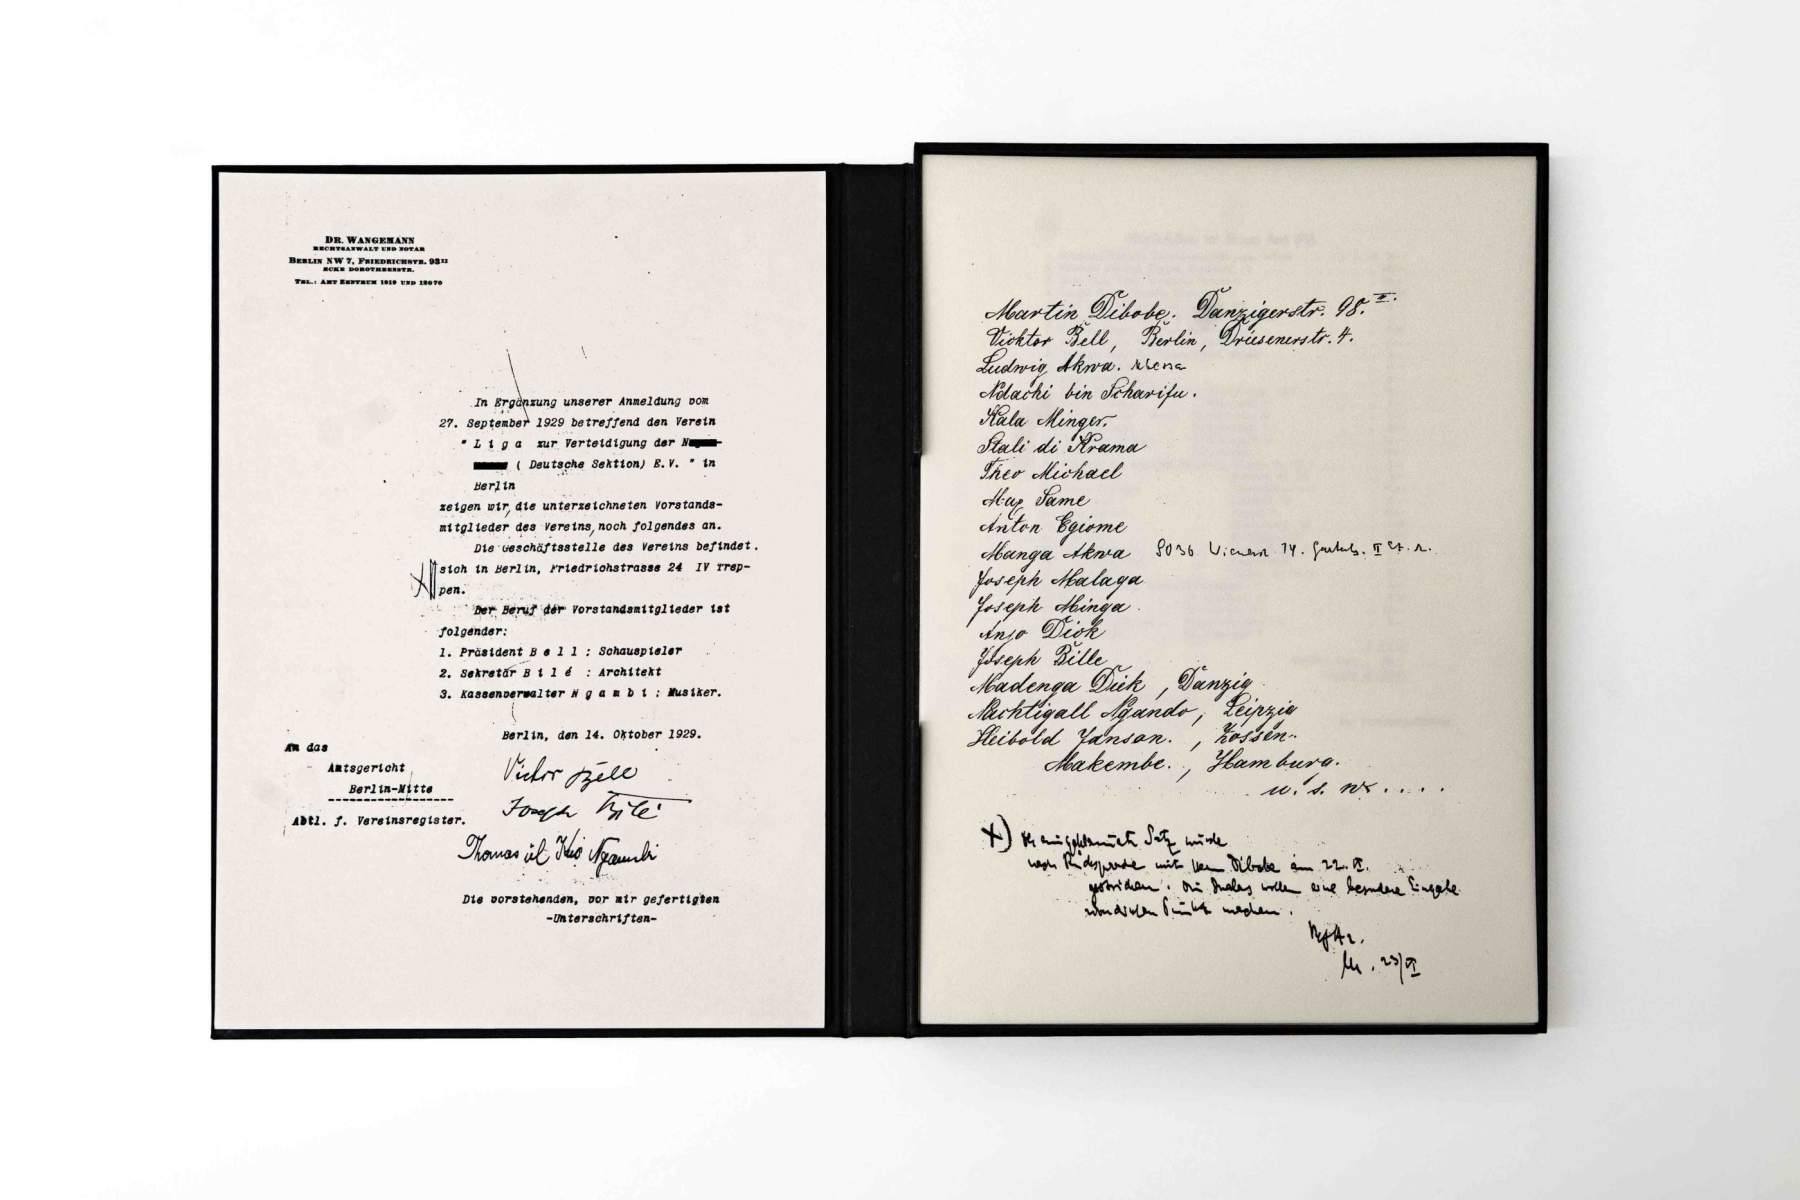 DR. WANGEMANN
RECHTSANWALT UND NOTAR
BERLIN NW 7, FRIEDRICHSTR. 93 II
ECKE DOROTHEENSTR.
TEL.: AMT ZENTRUM 1919 UND 12070
In Ergänzung unserer Anmeldung vom
27. September 1929 betreffend den Verein
" L i g a zur Verteidigung der N
( Deutsche Sektion) E.V. " in
Berlin
zeigen wir, die unterzeichneten Vorstands-
mitglieder des Vereins, noch folgendes an.
Die Geschäftsstelle des Vereins befindet.
sich in Berlin, Friedrichstrasse 24 IV Trep-
pen.
Der Beruf der Vorstandsmitglieder ist
folgender:
1. Präsident B e l l : Schauspieler
2. Sekretär B i l é : Architekt
3. Kassenverwalter N g a m b i : Musiker.
Berlin, den 14. Oktober 1929.
An das
Amtsgericht
Berlin-Mitte
Abtl. f. Vereinsregister.
Victor Bell
Joseph Bilé
Thomas Ngambi
Die vorstehenden, vor mir gefertigten
-Unterschriften-
Martin Dibobe. Danzigerstr. 98. II.
Vicktor Bell, Berlin, Driesenerstr. 4.
Ludwig Akwa.
Ndachi bin Scharifu.
Kala Minger.
Stali di Krama
Theo Michael
Max Same
Anton Egiome
Manga Akwa
Joseph Malaga
Joseph Minga
Anjo Dick
Joseph Bille
Madenga Dick, Danzig
Nachtigall Ngando, Leipzig
Heibold Jansan., Zossen.
Makembe., Hamburg.
u. s. w. . . . .
x) Satz wurde
nach Rücksprache mit Dibobe am 22. VI.
gestrichen. eine besondere Eingabe
machen.
23/VI